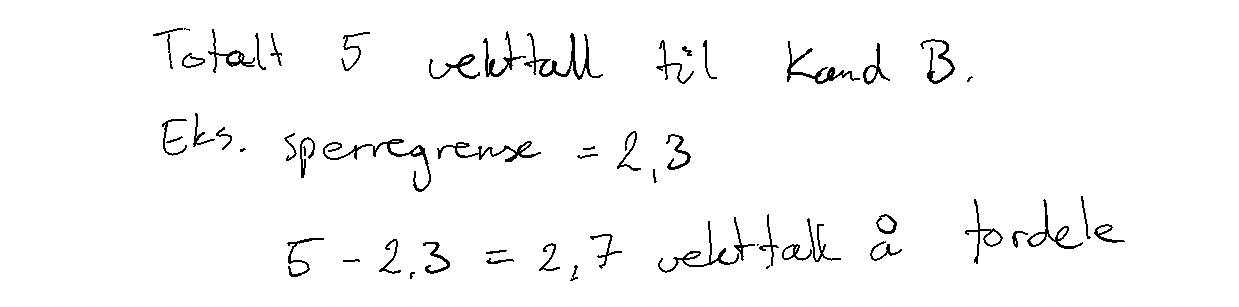 Totalt 5 vekttall til Kand B.
Eks. sperregrense = 2,3
5 - 2,3 = 2,7 vekttall å fordele